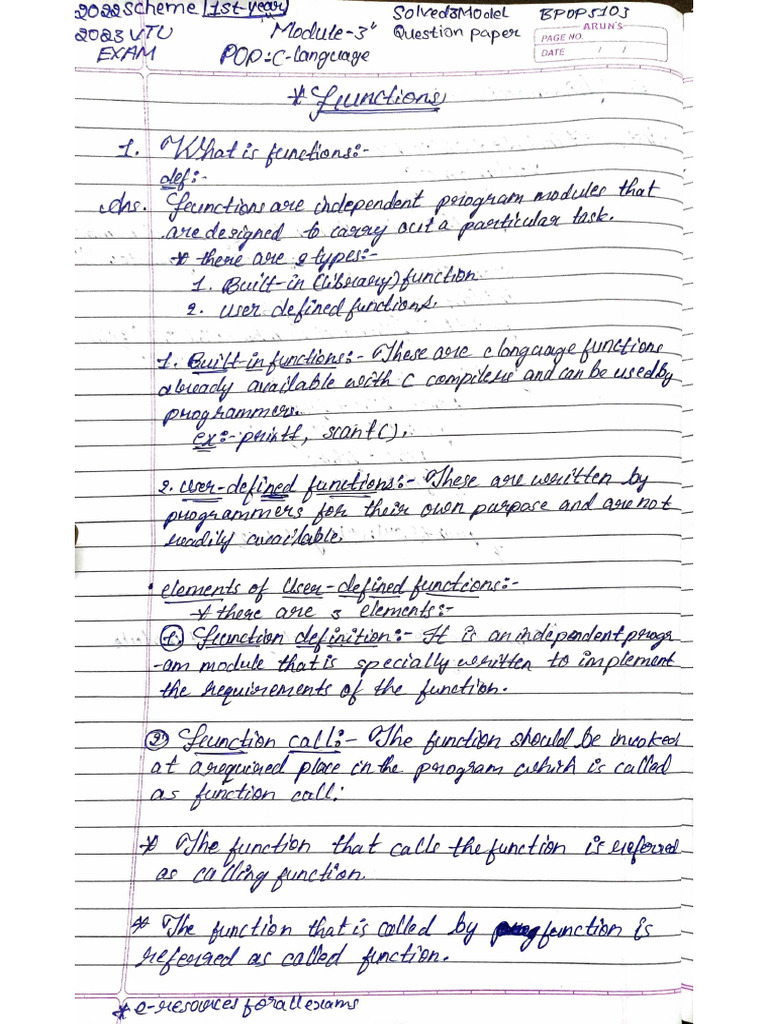 2022 scheme (1st-year) Solved3Model BPOPS103
2023 VTU Module-3" Question paper ARUN'S
PAGE NO.
EXAM POP:C-language DATE / /
* Functions
1. What is functions:-
def:-
Ans. Functions are independent program modules that
are designed to carry out a particular task.
* there are 2 types:-
1. Built-in (library) function
2. User defined functions.
1. Built in functions:- These are c language functions
already available with C compilers and can be used by
programmers.
ex:- printf, scanf().
2. User-defined functions:- These are written by
programmers for their own purpose and are not
readily available.
• elements of User-defined functions:-
* there are 3 elements:-
1. Function definition:- It is an independent progr
-am module that is specially written to implement
the requirements of the function.
2) Function call:- The function should be invoked
at a required place in the program which is called
as function call:
* The function that calls the function is referred
as calling function.
* The function that is called by function is
referred as called function.
* e-resources for all exams